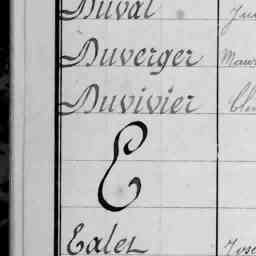 Duval
Duverger Maur
Duvivier
E
Ealet Jose